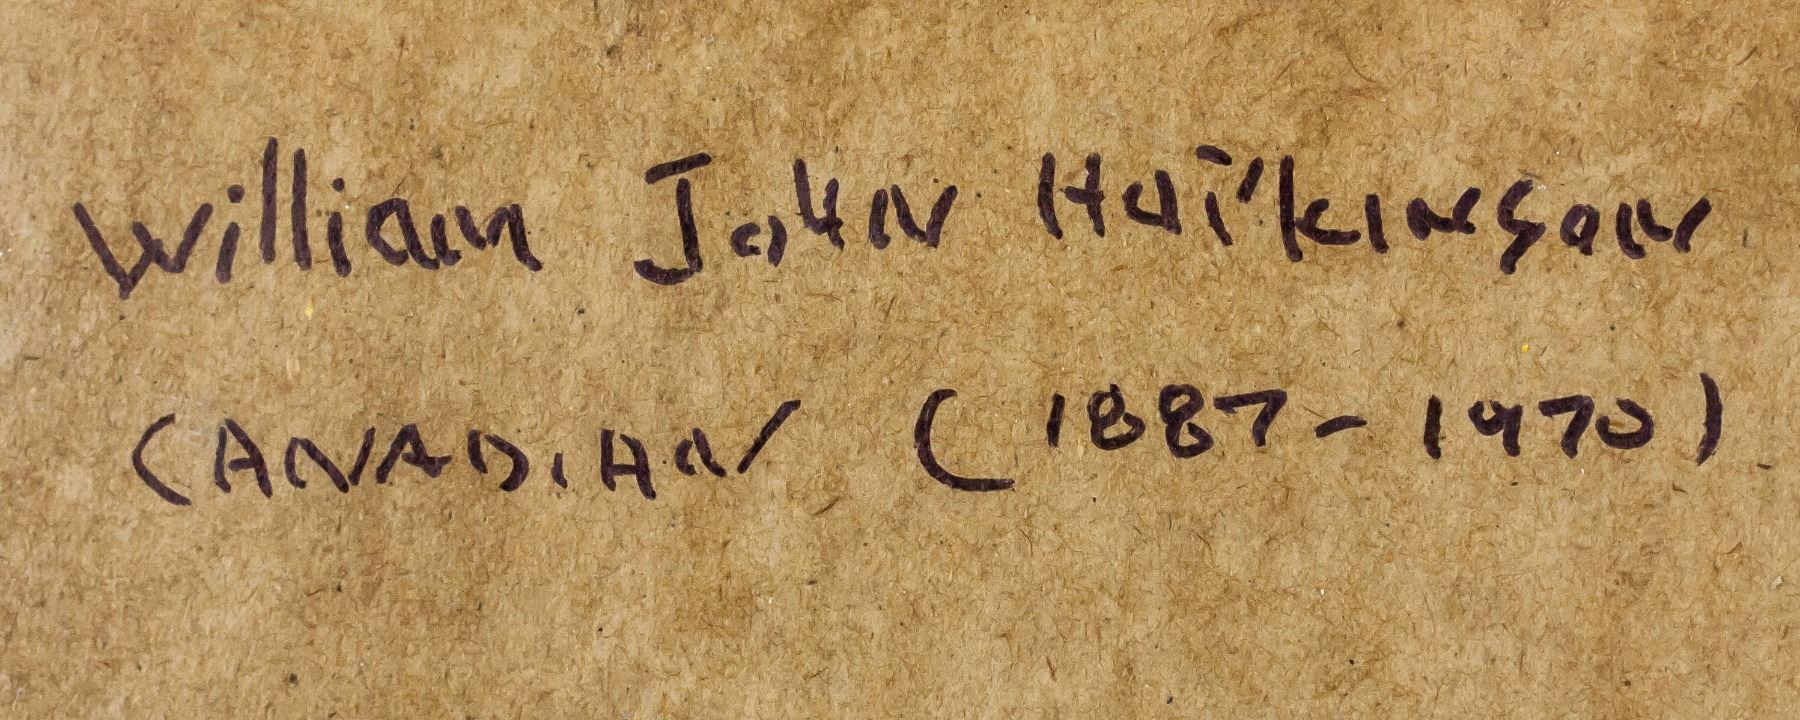 William John Hopkinson
CANADIAN (1887-1970)